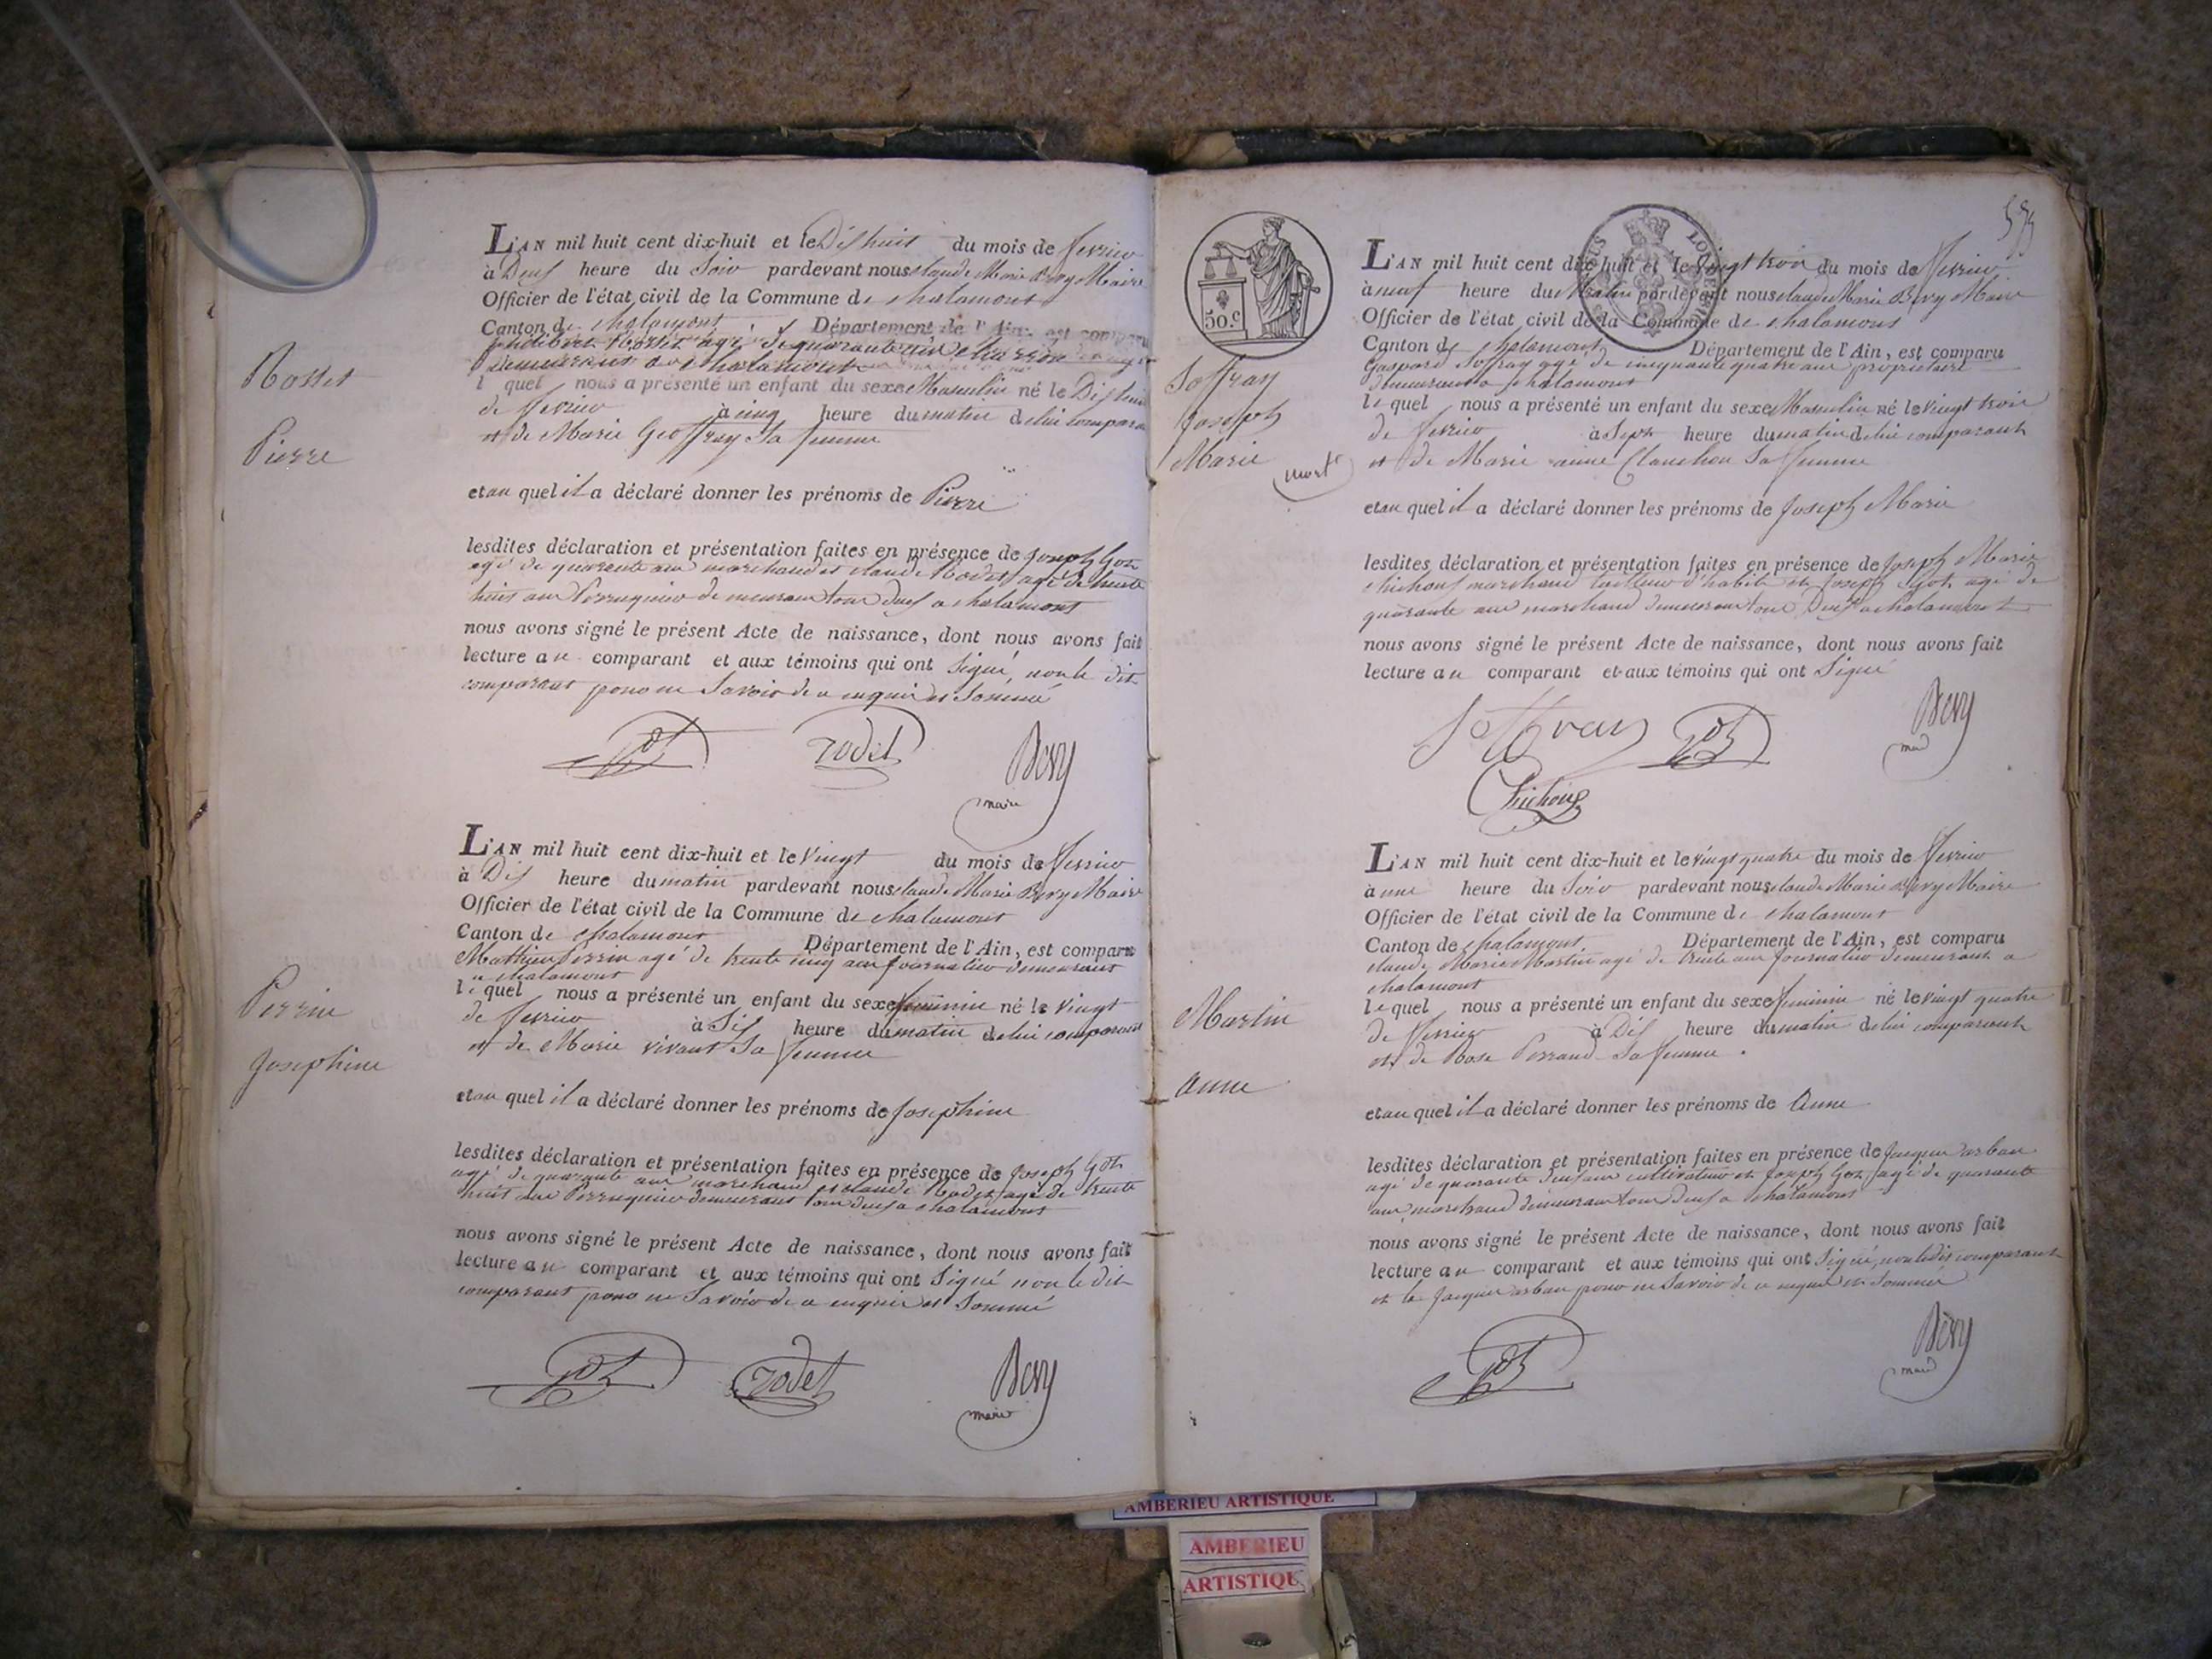 Rosset
Pierre
L'AN mil huit cent dix-huit et le Dishuit du mois de fevrier
à Deus heure du Soir pardevant nous claude Marie Bery Maire
Officier de l'état civil de la Commune de chalamont
Canton de chalamont Département de l'Ain, est comparu
Rosset agé de quarante
demeurant a chalamont
lequel nous a présenté un enfant du sexe Masculin né le Dishuit
de fevrier à cinq heure du matin de lui comparant
et de Marie Geoffray Sa femme
et au quel il a déclaré donner les prénoms de Pierre
lesdites déclaration et présentation faites en présence de joseph Got
agé de quarante ans marchand et claude Rodet agé de trente
huit ans Perruquier demeurant tous deus a chalamont
nous avons signé le présent Acte de naissance, dont nous avons fait
lecture au comparant et aux témoins qui ont Signé, non le dit
comparant pour ne Savoir de ce enquis et Sommé
Got Rodet Bery
maire
Perrin
josephine
L'AN mil huit cent dix-huit et le vingt du mois de fevrier
à Dis heure du matin pardevant nous claude Marie Bery Maire
Officier de l'état civil de la Commune de chalamont
Canton de chalamont Département de l'Ain, est comparu
Mathieu Perrin agé de trente cinq ans journalier demeurant
a chalamont
lequel nous a présenté un enfant du sexe feminin né le vingt
de fevrier à Sis heure du matin de lui comparant
et de Marie vivant Sa femme
et au quel il a déclaré donner les prénoms de josephine
lesdites déclaration et présentation faites en présence de joseph Got
agé de quarante ans marchand et claude Rodet agé de trente
huit ans Perruquier demeurant tous deus a chalamont
nous avons signé le présent Acte de naissance, dont nous avons fait
lecture au comparant et aux témoins qui ont Signé non le dit
comparant pour ne Savoir de ce enquis et Sommé
Got Rodet Bery
maire
50.c
Soffray
joseph
Marie
mort
L'AN mil huit cent dix-huit et le vingt trois du mois de fevrier
à neuf heure du Matin pardevant nous claude Marie Bery Maire
Officier de l'état civil de la Commune de chalamont
Canton de chalamont Département de l'Ain, est comparu
Gaspard Soffray agé de cinquante quatre ans propriétaire
demeurant a chalamont
lequel nous a présenté un enfant du sexe Masculin né le vingt trois
de fevrier à Sept heure du matin de lui comparant
et de Marie anne Clanchon Sa femme
et au quel il a déclaré donner les prénoms de joseph Marie
lesdites déclaration et présentation faites en présence de joseph Marie
marchand tailleur d'habits et joseph Got agé de
quarante ans marchand demeurant tous Deus a chalamont
nous avons signé le présent Acte de naissance, dont nous avons fait
lecture au comparant et aux témoins qui ont Signé
Soffray Got Bery
maire
Martin
anne
L'AN mil huit cent dix-huit et le vingt quatre du mois de fevrier
à une heure du Soir pardevant nous claude Marie Bery Maire
Officier de l'état civil de la Commune de chalamont
Canton de chalamont Département de l'Ain, est comparu
claude Marie Martin agé de trente ans journalier demeurant a
chalamont
lequel nous a présenté un enfant du sexe feminin né le vingt quatre
de fevrier à Dis heure du matin de lui comparant
et de Rose Perraud Sa femme.
et au quel il a déclaré donner les prénoms de Anne
lesdites déclaration et présentation faites en présence de jacques arban
agé de quarante deus ans cultivateur et joseph Got agé de quarante
ans marchand demeurant tous deus a chalamont
nous avons signé le présent Acte de naissance, dont nous avons fait
lecture au comparant et aux témoins qui ont Signé, non le dit comparant
et le jacques arban pour ne Savoir de ce enquis et Sommé
Got Bery
maire
AMBERIEU ARTISTIQUE
AMBERIEU
ARTISTIQUE